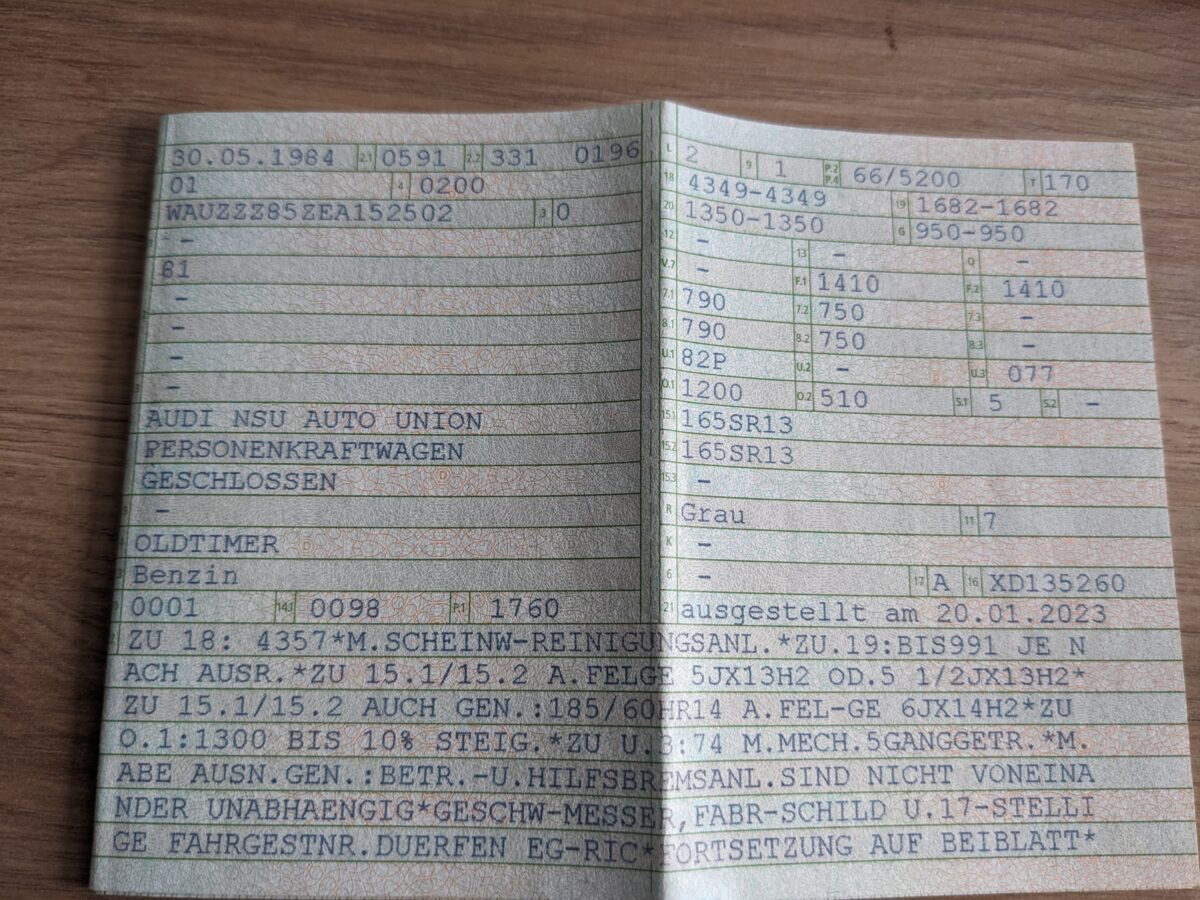 30.05.1984 2.1 0591 2.2 331 0196
01 4 0200
WAUZZZ85ZEA152502 3 0
-
81
-
-
-
-
AUDI NSU AUTO UNION
PERSONENKRAFTWAGEN
GESCHLOSSEN
-
OLDTIMER
Benzin
0001 14.1 0098 P.1 1760
L 2 9 1 P.2 P.4 66/5200 T 170
18 4349-4349 19 1682-1682
20 1350-1350 G 950-950
12 - 13 - Q -
V.7 - F.1 1410 F.2 1410
7.1 790 7.2 750 7.3 -
8.1 790 8.2 750 8.3 -
U.1 82P U.2 - U.3 077
O.1 1200 O.2 510 S.1 5 S.2 -
15.1 165SR13
15.2 165SR13
15.3 -
R Grau 11 7
K -
6 - 17 A 16 XD135260
21 ausgestellt am 20.01.2023
ZU 18: 4357*M.SCHEINW-REINIGUNGSANL.*ZU.19:BIS991 JE N
ACH AUSR.*ZU 15.1/15.2 A.FELGE 5JX13H2 OD.5 1/2JX13H2*
ZU 15.1/15.2 AUCH GEN.:185/60HR14 A.FEL-GE 6JX14H2*ZU
O.1:1300 BIS 10% STEIG.*ZU U.3:74 M.MECH.5GANGGETR.*M.
ABE AUSN.GEN.:BETR.-U.HILFSBREMSANL.SIND NICHT VONEINA
NDER UNABHAENGIG*GESCHW-MESSER,FABR-SCHILD U.17-STELLI
GE FAHRGESTNR.DUERFEN EG-RIC*FORTSETZUNG AUF BEIBLATT*